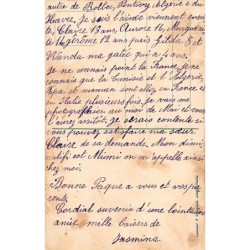 autre de Bolbec, Pontivy Algérie e du
Havre, je suis l'ainée viennent ensuite
Claire 13 ans, Aurore 16, Marguerite
14, Jérôme 12 ans puis Gilda 8 et
Wanda ma gatée qui a 4 ans
je ne connais point la France, je ne
connais que la Tunisie et l'Algérie,
Papa et maman sont allés en France et
en Italie plusieurs fois, je vais me
photographier au mois de Mai et vous
l'aurez aussitôt, je serais contente si
vous pouvez satisfaire ma sœur
Claire de sa demande. Mon dimi
nutif est Mimi on m'appelle ainsi
chez moi.
Bonne Paque a vous et vos pa
rents.
Cordial souvenir d'une lointaine
amie mille baisers de
Jasmina